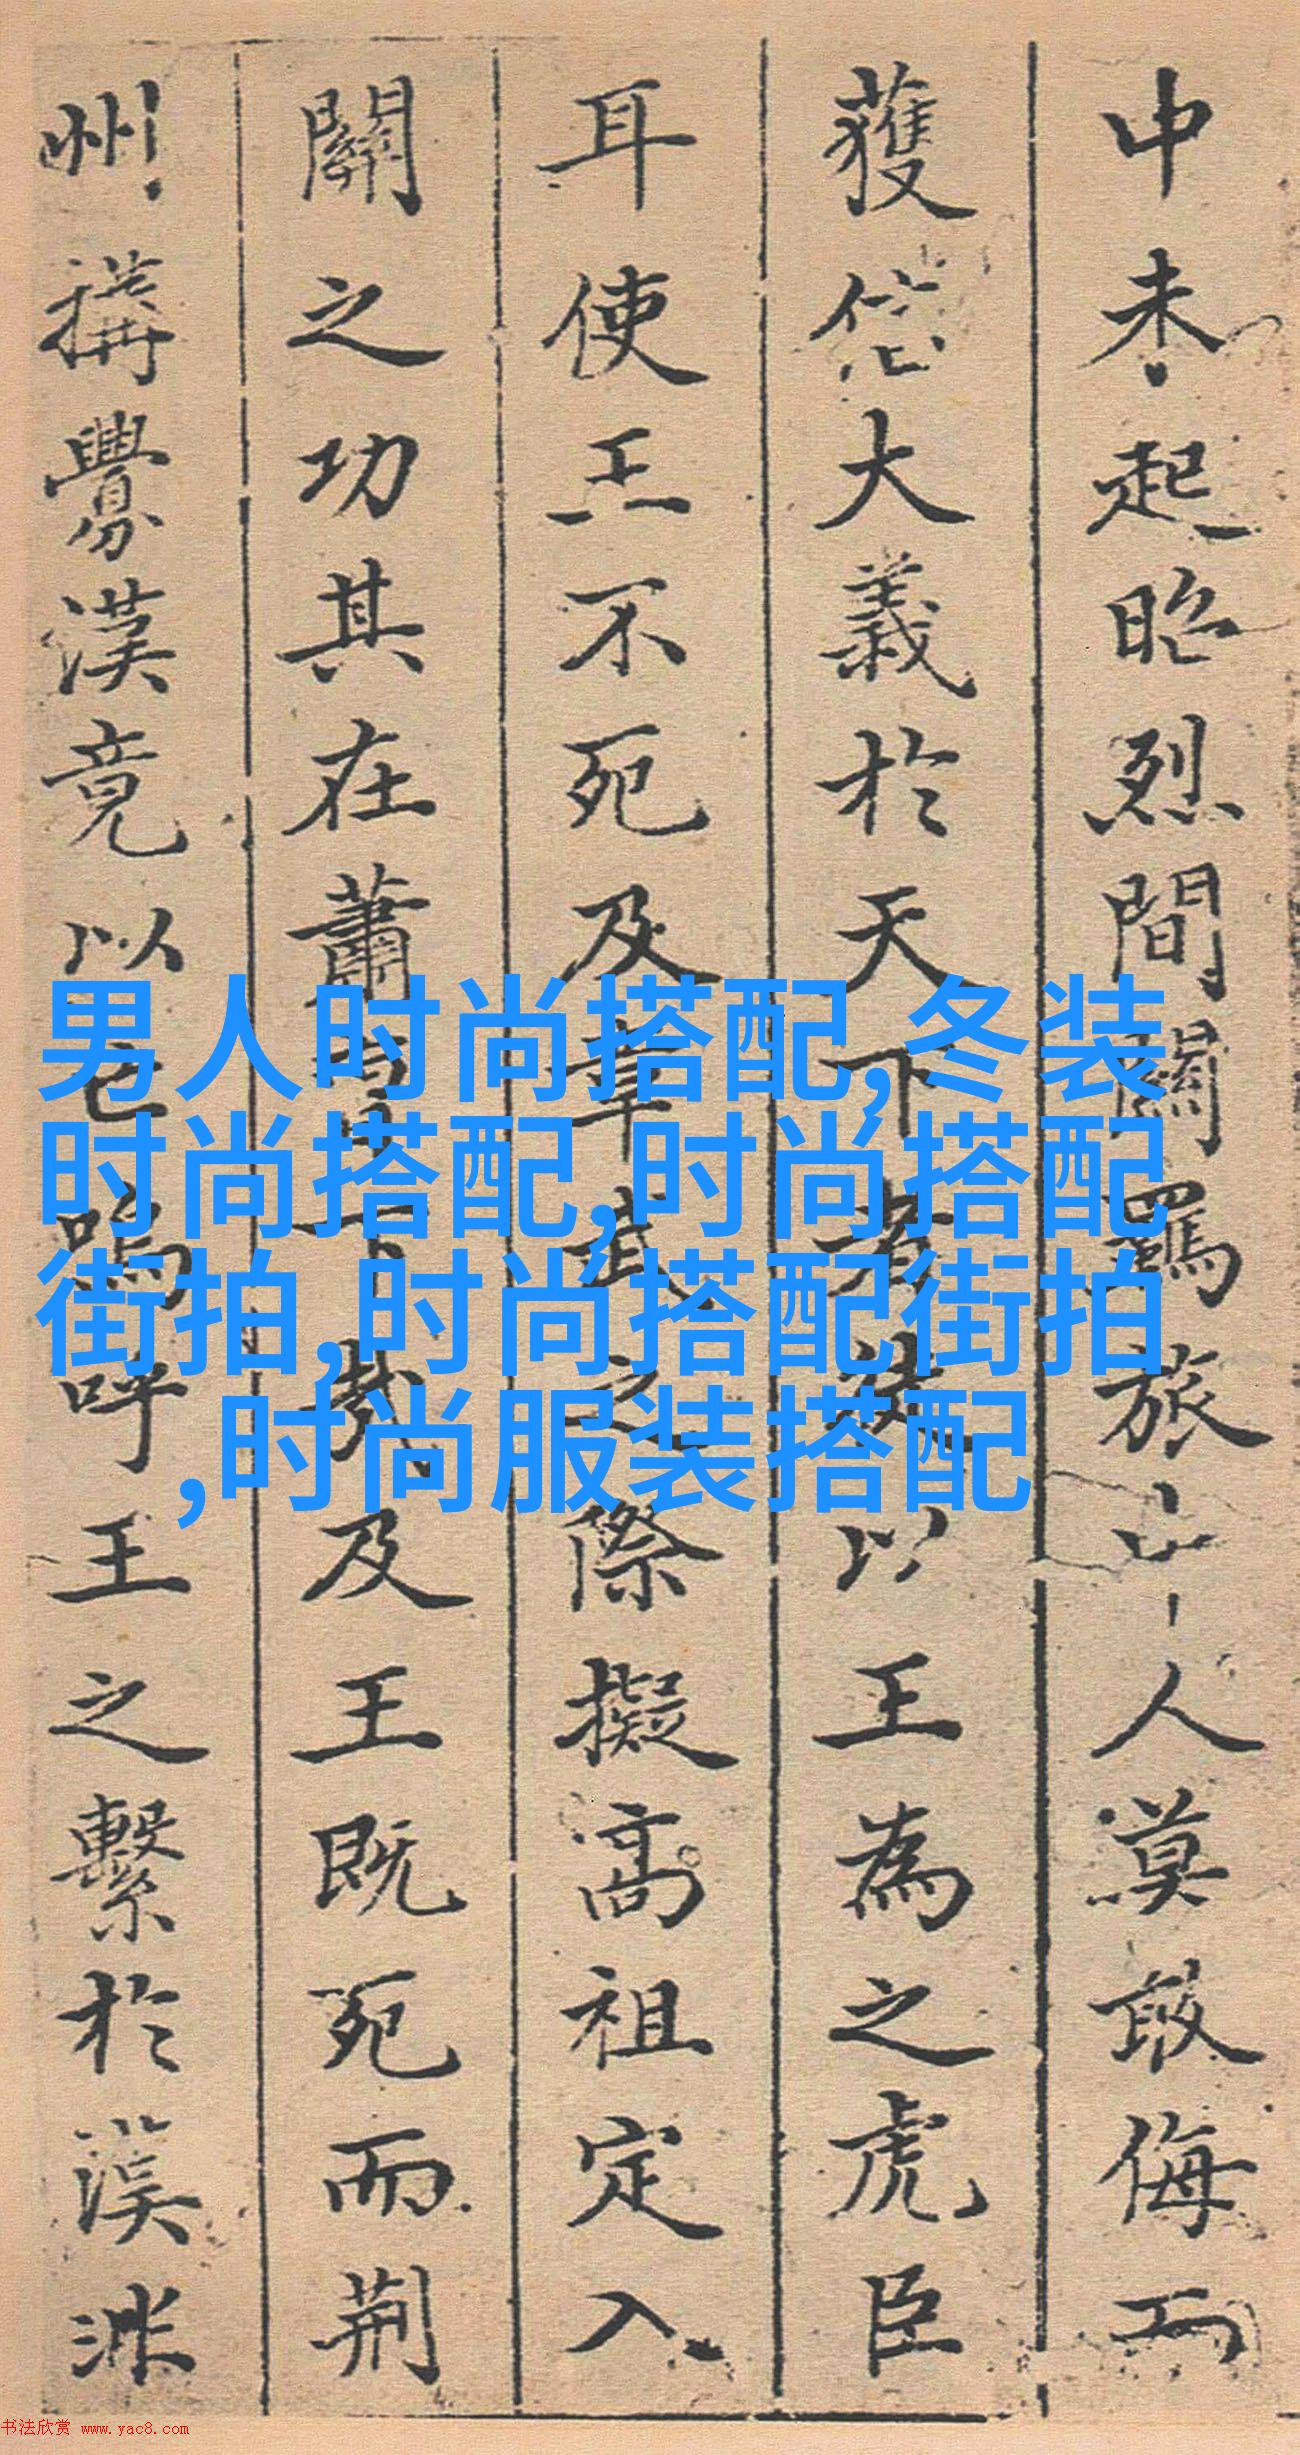 中未起昭烈間關羈旅一人莫敢侮而
獲信大義於天下者徒以王為之虎臣
耳使王不死及章武之際擬高祖定入
關之功其在蕭曹下哉及王既死而荊
州搆釁漢竟以亡嗚呼王之繫於漢非
男人时尚搭配,冬装
时尚搭配,时尚搭配
街拍,时尚搭配街拍
,时尚服装搭配
书法欣赏 www.yac8.com